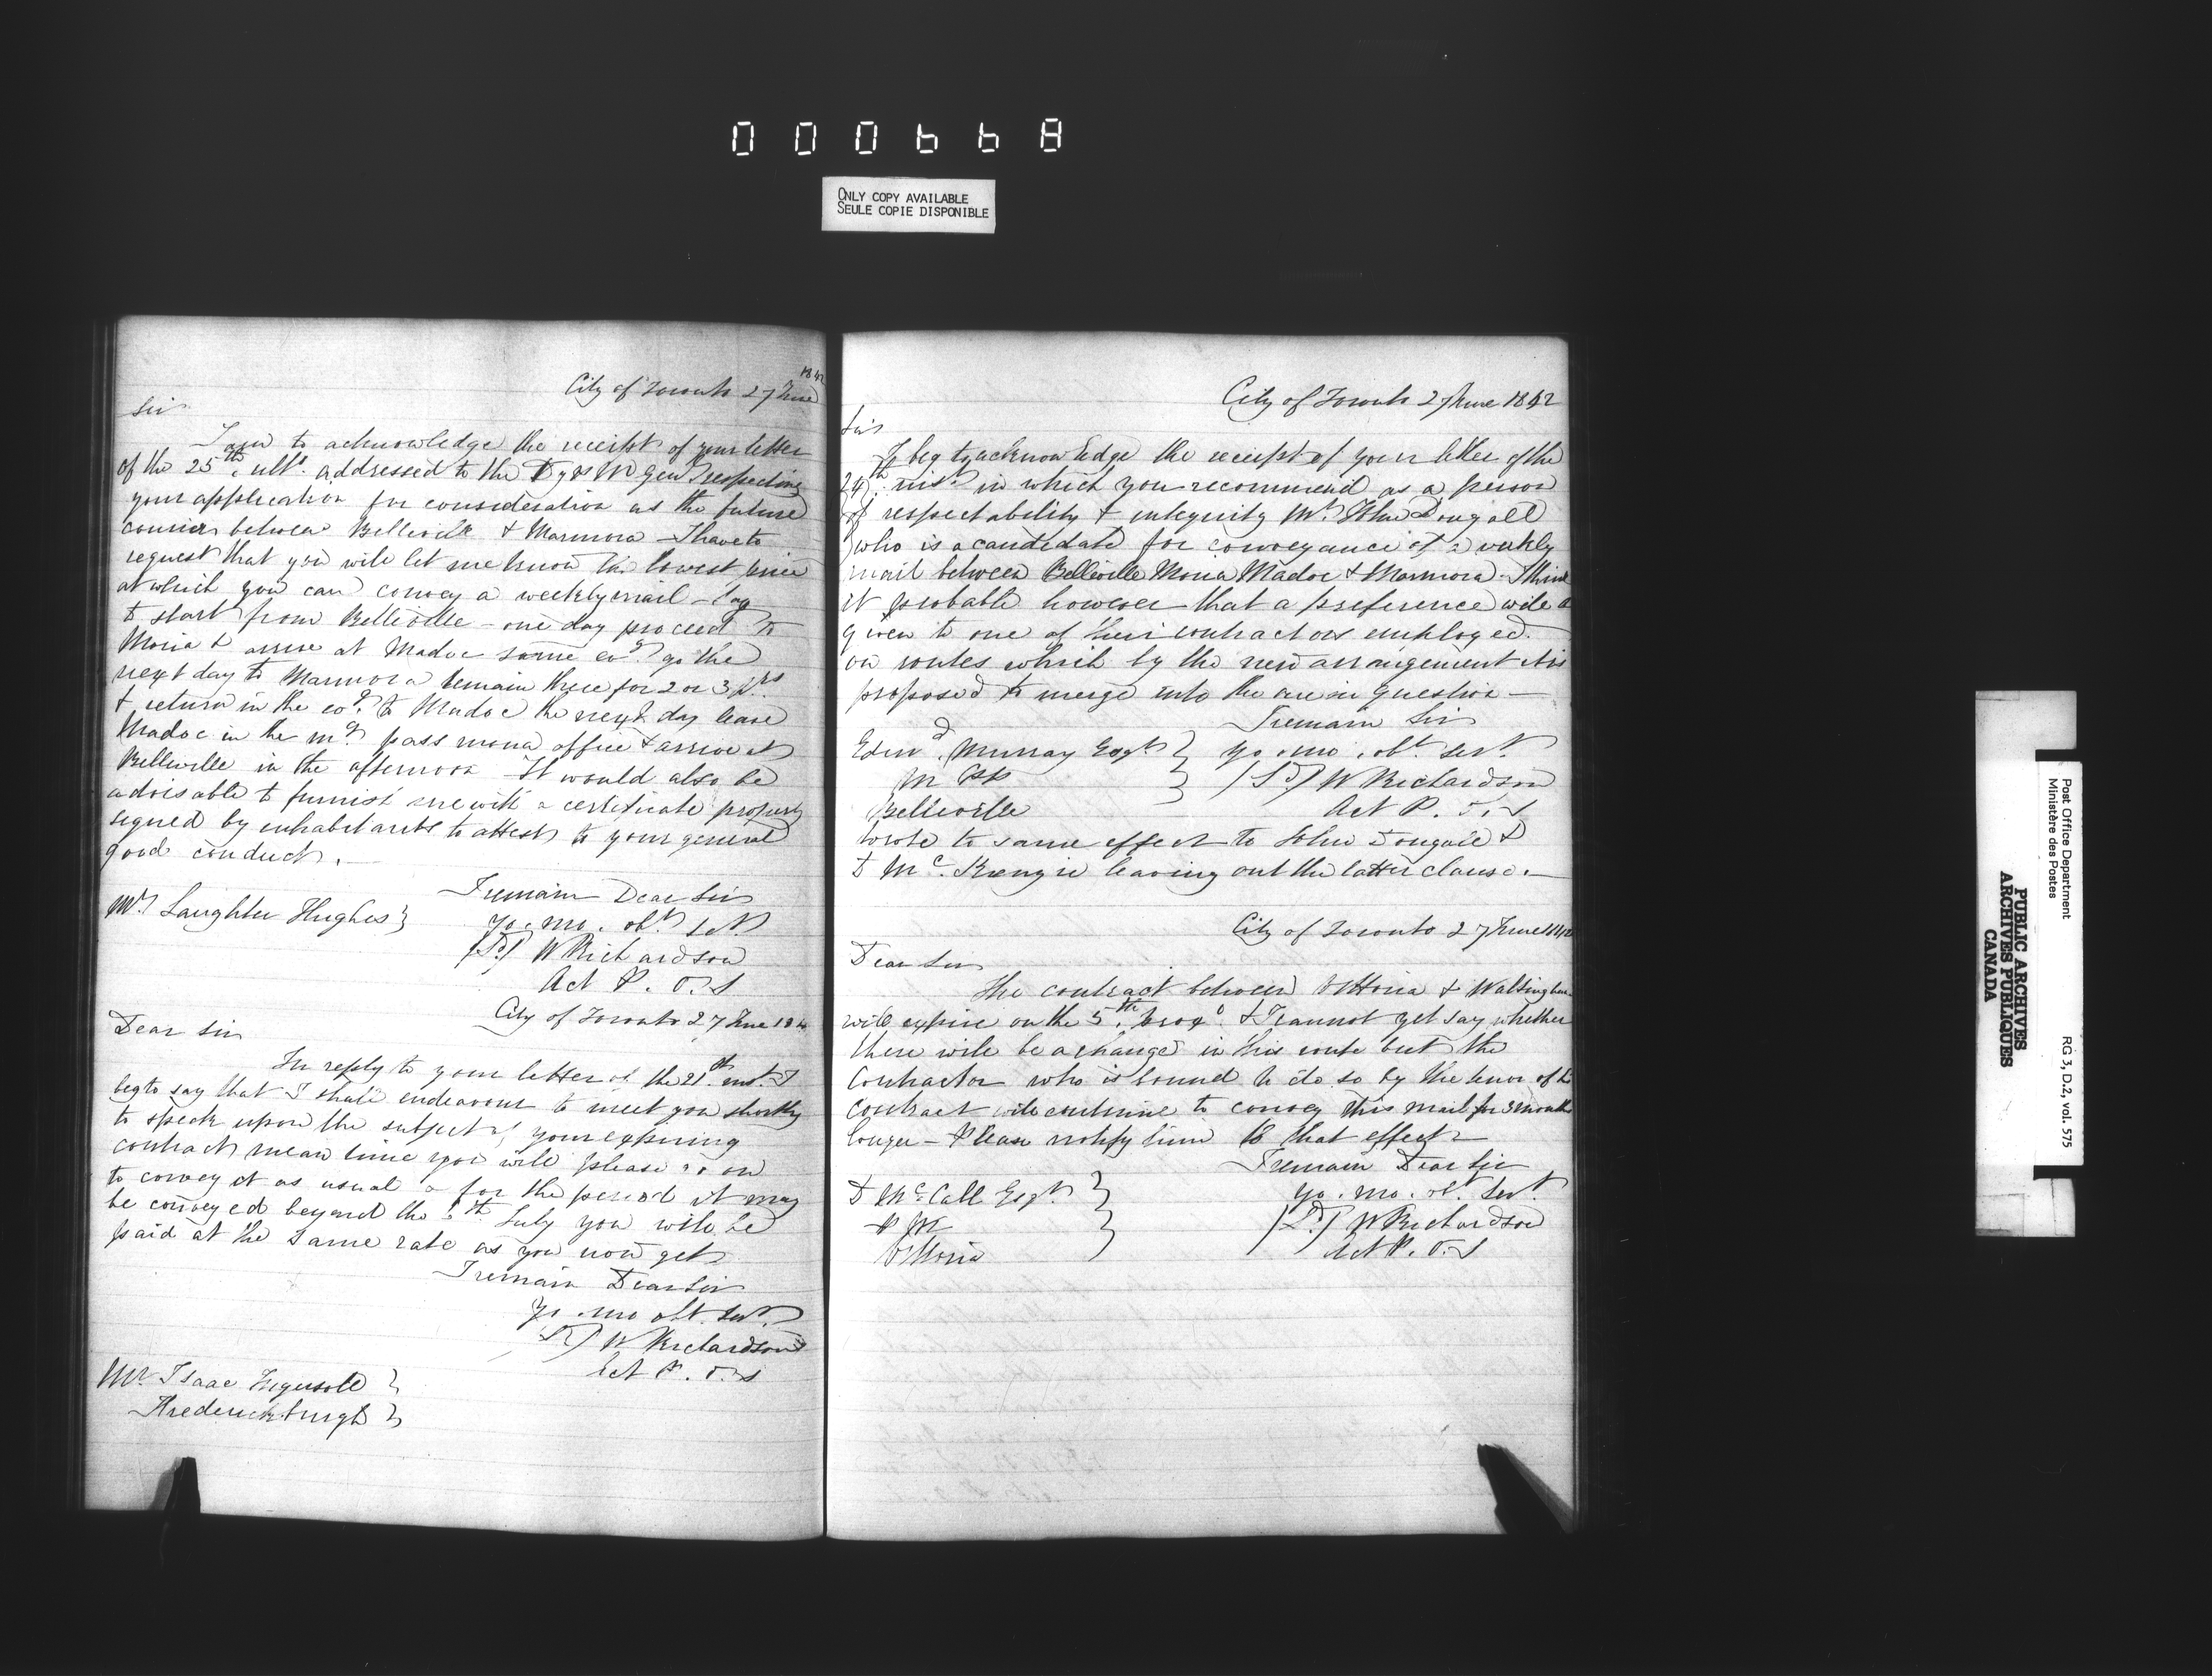 000668
ONLY COPY AVAILABLE
SEULE COPIE DISPONIBLE
City of Toronto 27 June 1842
Sir
I am to acknowledge the receipt of your letter
of the 25th ulto. addressed to the Dy P M Genl respecting
your application for consideration as the future
courier between Belleville & Marmora - I have to
request that you will let me know the lowest price
at which you can convey a weekly mail - say
to start from Belleville - one day proceed to
Moria & arrive at Madoc same evg. go the
next day to Marmora remain there for 2 or 3 hrs
& return in the evg. to Madoc the next day leave
Madoc in the mg. pass moria office & arrive at
Belleville in the afternoon - It would also be
advisable to furnish me with a certificate properly
signed by inhabitants to attest to your general
good conduct. -
I remain Dear Sir
Mr Laughlin Hughes } yo. mo. obt. Sert.
(Sd.) W Richardson
Act P. O. S
City of Toronto 27 June 184
Dear Sir
In reply to your letter of the 21st inst. I
beg to say that I shall endeavour to meet you shortly
to speak upon the subject of your expiring
contract mean time you will please go on
to convey it as usual & for the period it may
be conveyed beyond the 5th July you will be
paid at the same rate as you now get
I remain Dear Sir
yo. mo obt. Sert.
(Sd) W Richardson
Act P. O. S
Mr Isaac Ingersoll }
Fredericksburgh }
City of Toronto 27 June 1842
Sir
I beg to acknowledge the receipt of your letter of the
24th. inst. in which you recommend as a person
of respectability & integrity Mr. John Dougall
who is a candidate for conveyance of a weekly
mail between Belleville Moria Madoc & Marmora. I think
it probable however that a preference will
given to one of their contractors employed.
on routes which by the new arrangement it is
proposed to merge into the one in question -
I remain Sir
Edwd. Murray Esqr. } yo. mo. obt. Sert.
M PP } (Sd) W Richardson
Belleville Act P. O. S
Wrote to same effect to John Dougall &
D McKenzie leaving out the latter clause. -
City of Toronto 27 June 1842
Dear Sir
The contract between Vittoria & Walsingham
will expire on the 5th. proxo. & I cannot yet say whether
there will be a change in this route but the
Contractor who is bound to do so by the tenor of his
contract will continue to convey this mail for 3 months
longer - Please notify him to that effect -
I remain Dear Sir
D McCall Esqr. } yo. mo. obt. Sert.
P M } (Sd.) W Richardson
Vittoria Act P. O. S
Post Office Department
Ministère des Postes
RG 3, D.2, vol. 575
PUBLIC ARCHIVES
ARCHIVES PUBLIQUES
CANADA